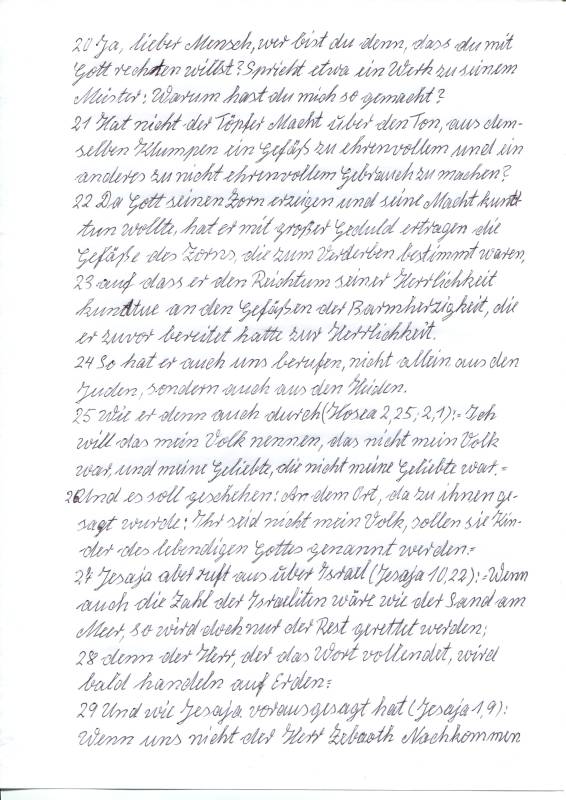 20 Ja, lieber Mensch, wer bist du denn, dass du mit
Gott rechten willst? Spricht etwa ein Werk zu seinem
Meister: Warum hast du mich so gemacht?
21 Hat nicht der Töpfer Macht über den Ton, aus dem-
selben Klumpen ein Gefäß zu ehrenvollem und ein
anderes zu nicht ehrenvollem Gebrauch zu machen?
22 Da Gott seinen Zorn erzeigen und seine Macht kund
tun wollte, hat er mit großer Geduld ertragen die
Gefäße des Zorns, die zum Verderben bestimmt waren,
23 auf dass er den Reichtum seiner Herrlichkeit
kundtue an den Gefäßen der Barmherzigkeit, die
er zuvor bereitet hatte zur Herrlichkeit.
24 So hat er auch uns berufen, nicht allein aus den
Juden, sondern auch aus den Heiden.
25 Wie er denn auch durch (Hosea 2,25; 2,1):= Ich
will das mein Volk nennen, das nicht mein Volk
war, und meine Geliebte, die nicht meine Geliebte war.=
26 Und es soll geschehen: An dem Ort, da zu ihnen ge-
sagt wurde: Ihr seid nicht mein Volk, sollen sie Kin-
der des lebendigen Gottes genannt werden.=
27 Jesaja aber ruft aus über Israel (Jesaja 10,22):=Wenn
auch die Zahl der Israeliten wäre wie der Sand am
Meer, so wird doch nur der Rest gerettet werden;
28 denn der Herr, der das Wort vollendet, wird
bald handeln auf Erden=
29 Und wie Jesaja vorausgesagt hat (Jesaja 1,9):
Wenn uns nicht der Herr Zebaoth Nachkommen